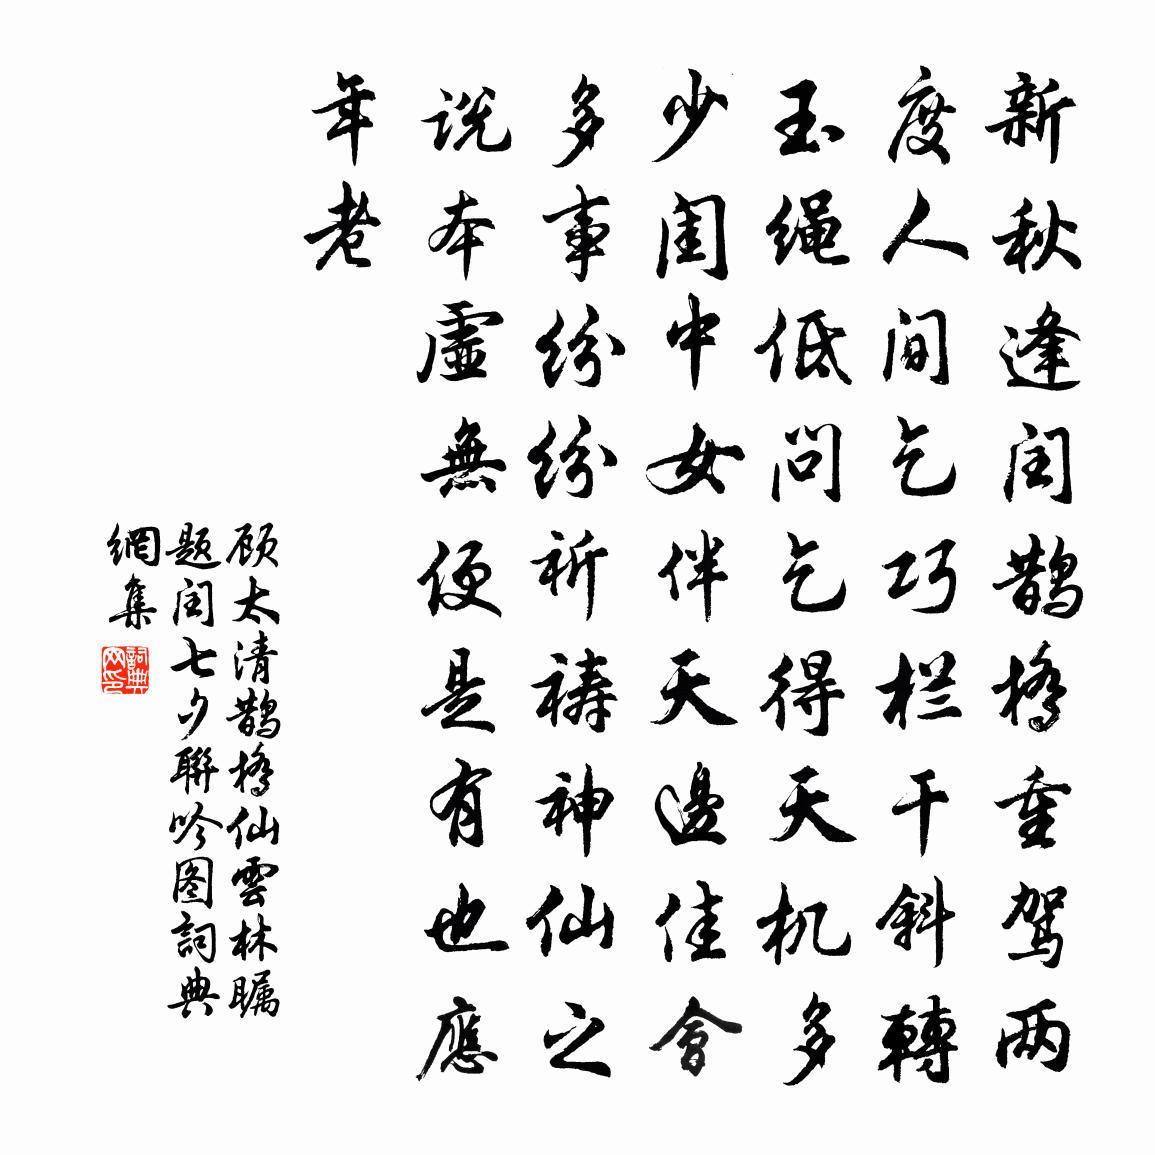 新秋逢闰鹊橋重驾两
度人间乞巧栏干斜轉
玉绳低问乞得天机多
少闺中女伴天邊佳會
多事纷纷祈祷神仙之
说本虛無便是有也應
年老
顾太清鹊橋仙雲林瞩
题闰七夕聯吟图詞典
網集
詞典网印